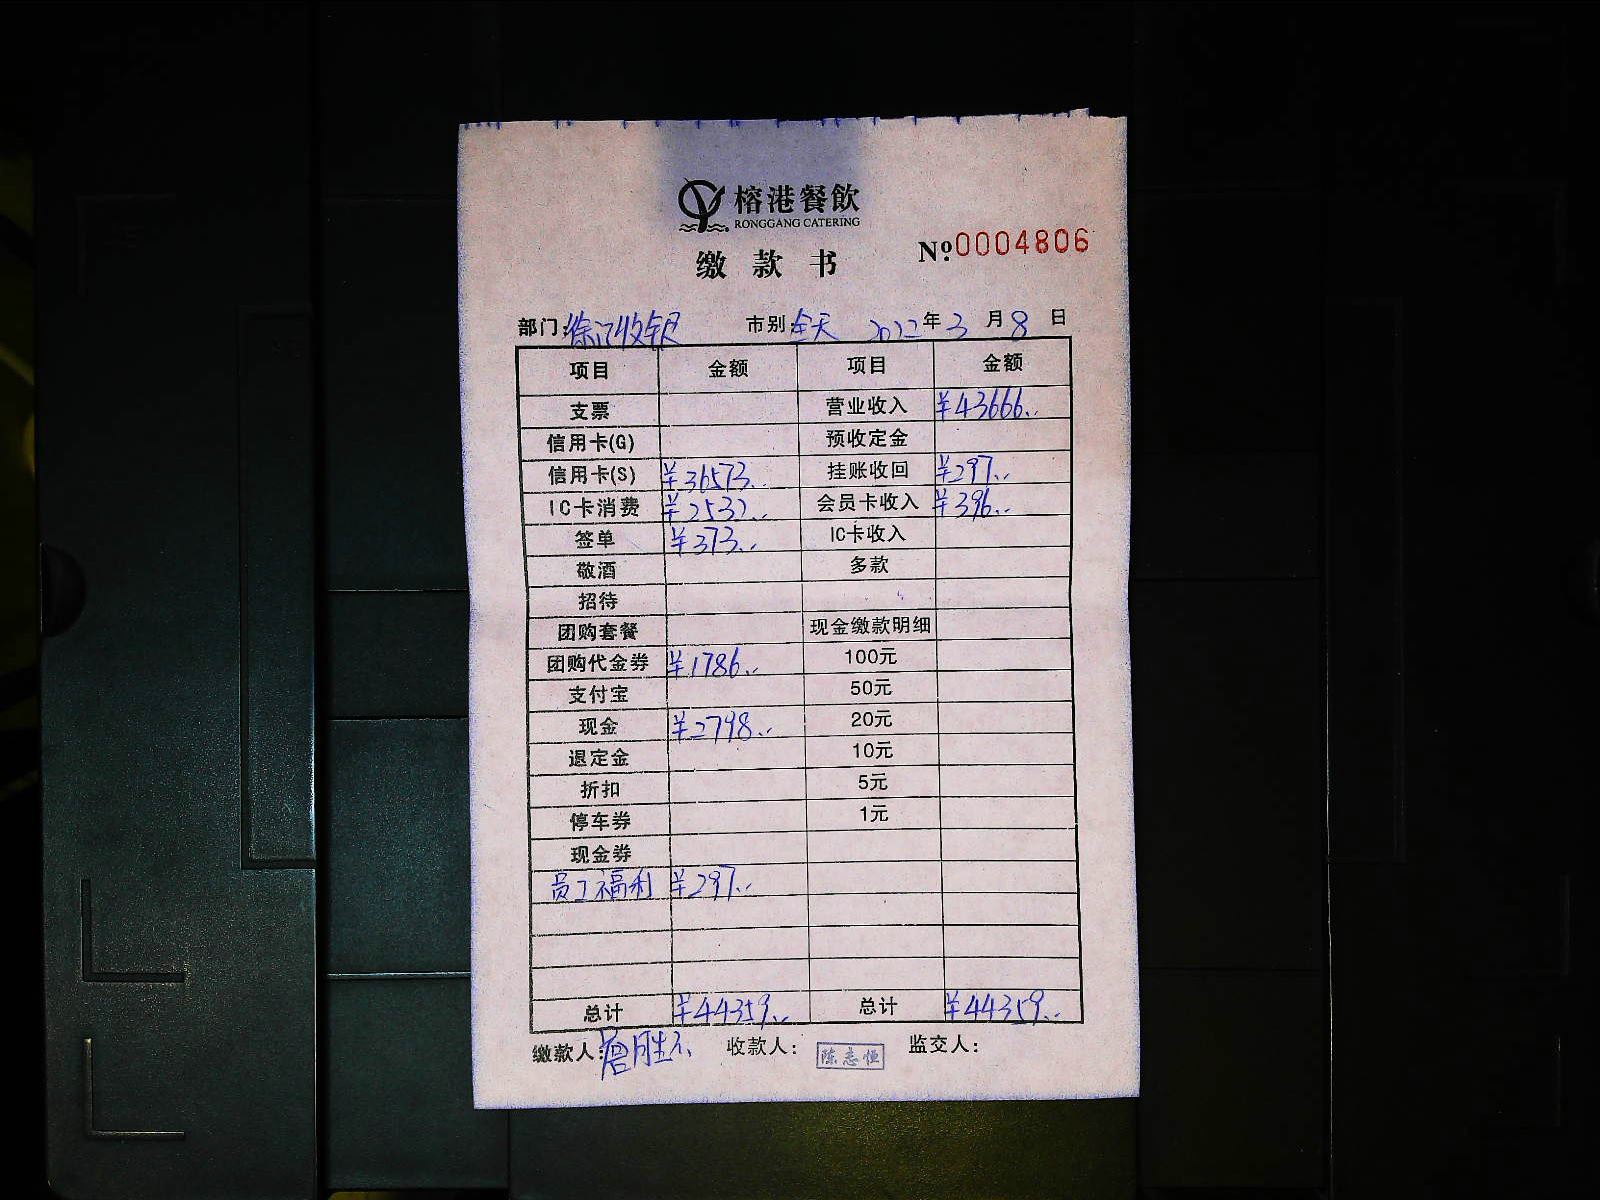 榕港餐飲
RONGGANG CATERING
缴款书 №0004806
部门: 徐汇收银 市别: 全天 2022年3月8日
项目 金额 项目 金额
支票 营业收入 ¥43666..
信用卡(G) 预收定金
信用卡(S) ¥36573.. 挂账收回 ¥297..
IC卡消费 ¥2532.. 会员卡收入 ¥396..
签单 ¥373.. IC卡收入
敬酒 多款
招待
团购套餐 现金缴款明细
团购代金券 ¥1786.. 100元
支付宝 50元
现金 ¥2798.. 20元
退定金 10元
折扣 5元
停车券 1元
现金券
员工福利 ¥297..
总计 ¥44359.. 总计 ¥44359..
缴款人: 收款人: 陈志恒 监交人: